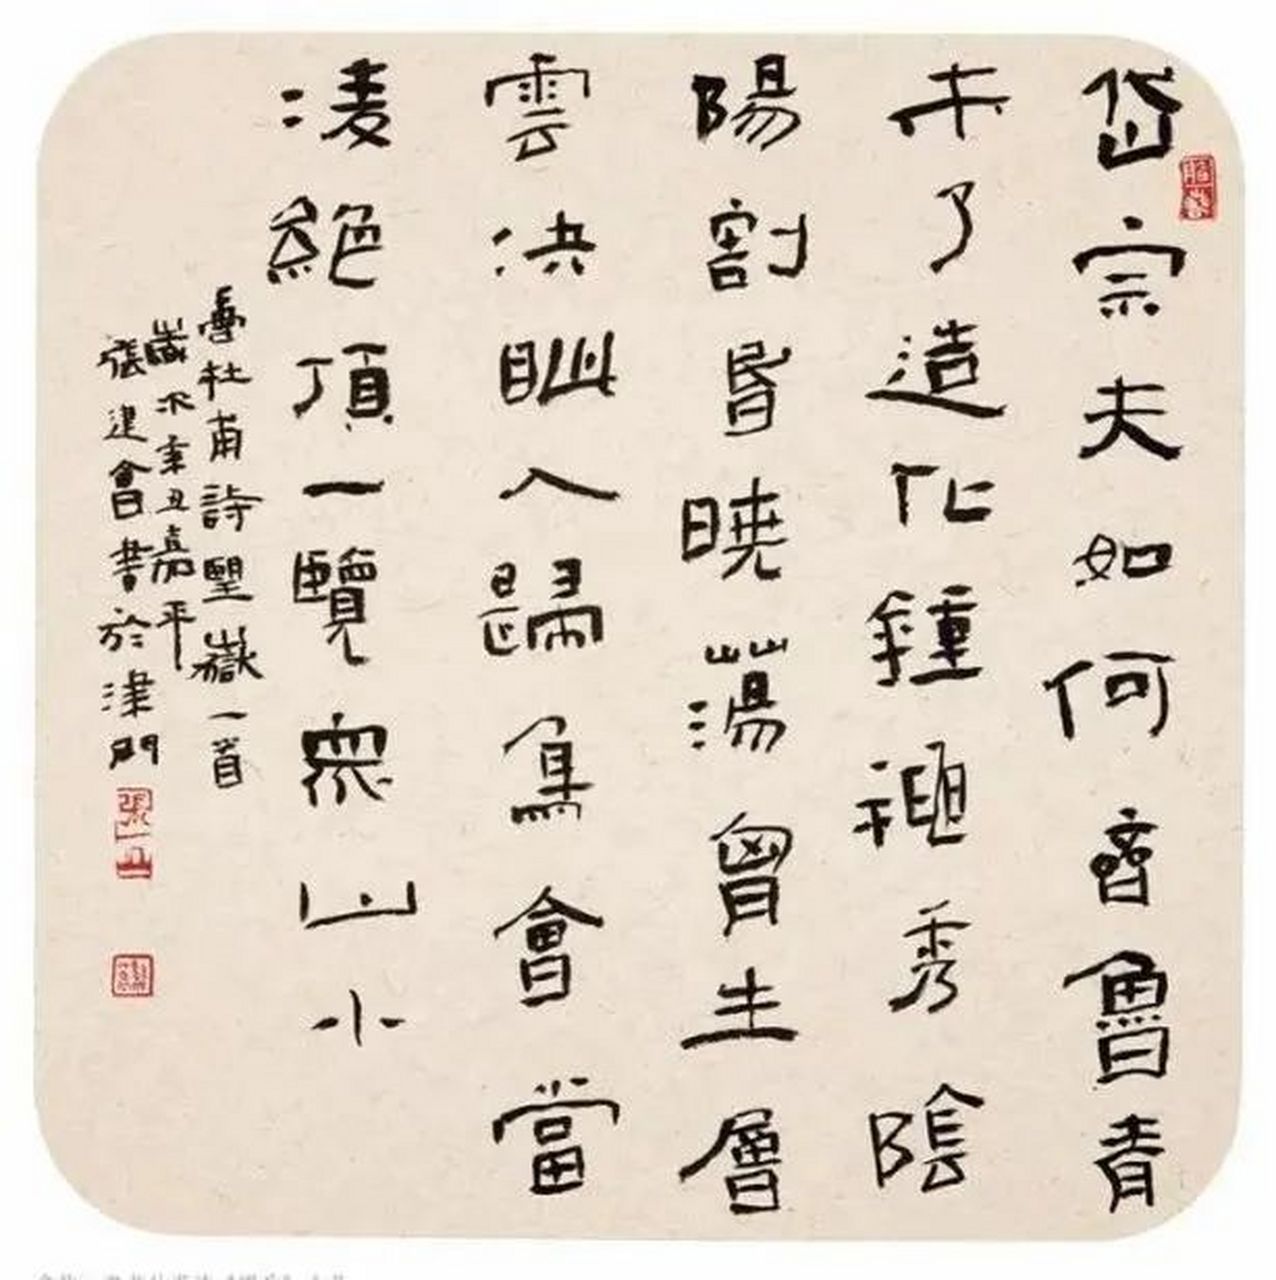 岱宗夫如何齊魯青
未了造化鍾神秀陰
陽割昏曉蕩胷生層
雲決眦入歸鳥會當
凌絕頂一覽眾山小
書杜甫詩望嶽一首
歲次辛丑嘉平
張建會書於津門